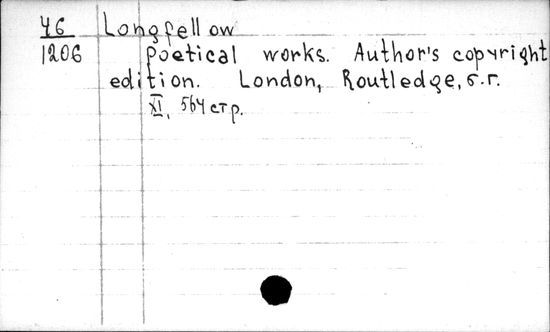 46 Longfellow
1206 Poetical works. Author's copyright
edition. London, Routledge, s.г.
XI, 564 стр.